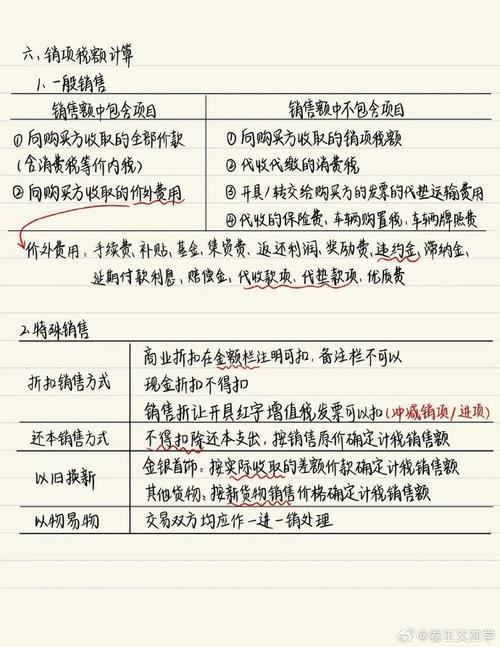 六、销项税额计算
1、一般销售
销售额中包含项目 销售额中不包含项目
①向购买方收取的全部价款 ①向购买方收取的销项税额
(含消费税等价内税) ②代收代缴的消费税
②向购买方收取的价外费用 ③开具/转交给购买方的发票的代垫运输费用
④代收的保险费、车辆购置税、车辆牌照费
价外费用：手续费、补贴、基金、集资费、返还利润、奖励费、违约金、滞纳金、
延期付款利息、赔偿金、代收款项、代垫款项、优质费
2、特殊销售
折扣销售方式 商业折扣在金额栏注明可扣，备注栏不可以
现金折扣不得扣
销售折让开具红字增值税发票可以扣(冲减销项/进项)
还本销售方式 不得扣除还本支出，按销售原价确定计税销售额
以旧换新 金银首饰：按实际收取的差额价款确定计税销售额
其他货物：按新货物销售价格确定计税销售额
以物易物 交易双方均应作一进一销处理
@卷王又在学